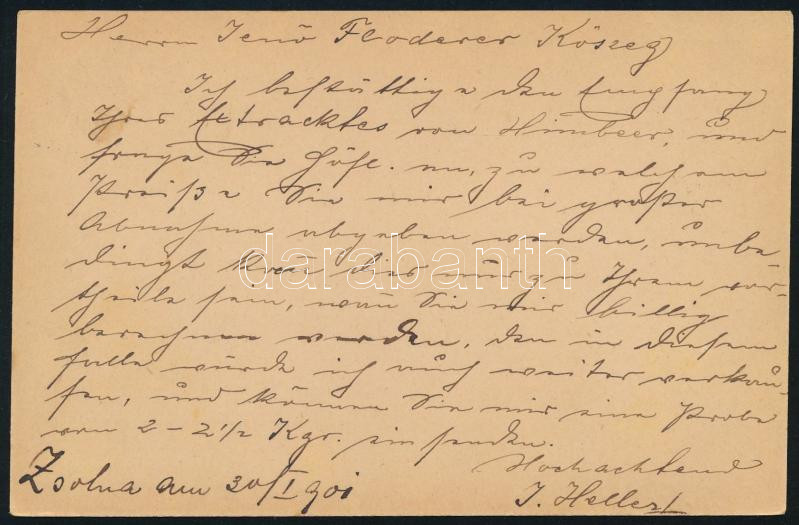 Herrn Jenö Floderer Köszeg
Ich bestättige den Empfang
Ihres Extracktes von Himbeer, und
frage Sie höfl. an, zu welchem
Preiße Sie mir bei großer
Abnahme abgeben werden, unbe-
dingt kan dies nur zu Ihrem vor-
theile sein, wan Sie mir billig
berechnen werden, den in diesem
falle würde ich auch weiter verkau-
fen, und können Sie mir eine Probe
von 2 - 2 1/2 Kgr. einsenden.
Hochachtend
Zsolna am 30/I 901
J. Heller
darabanth